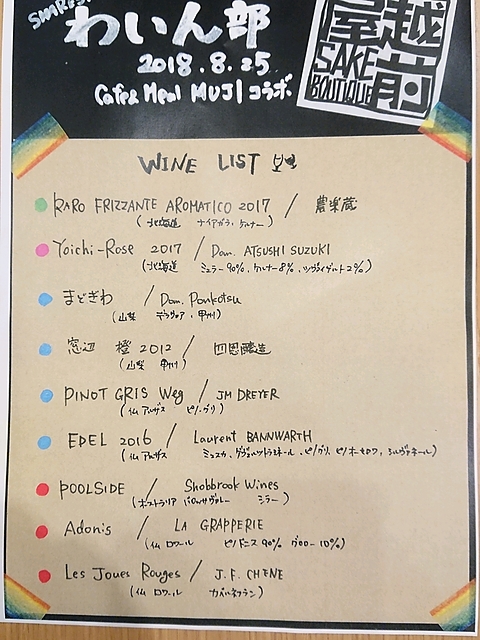 SHAREDINE
わいん部
2018.8.25
Cafe&Meal MUJIコラボ
越前
屋
SAKE
BOUTIQUE
WINE LIST
RARO FRIZZANTE AROMATICO 2017 / 農楽蔵
(北海道 ナイアガラ、ケルナー)
Yoichi-Rose 2017 / Dom. ATSUSHI SUZUKI
(北海道 ミュラー90%、ケルナー8%、ツヴァイゲルト2%)
まどぎわ / Dom. Ponkotsu
(山梨 デラウェア、甲州)
窓辺 橙 2012 / 四恩醸造
(山梨 甲州)
PINOT GRIS Weg / JM DREYER
(仏 アルザス ピノ・グリ)
EDEL 2016 / Laurent BANNWARTH
(仏 アルザス ミュスカ、ゲヴュルツトラミネール、ピノグリ、ピノオーセロワ、シルヴァネール)
POOLSIDE / Shobbrook Wines
(オーストラリア バロッサヴァレー シラー)
Adonis / LA GRAPPERIE
(仏 ロワール ピノドニス 90% グロロー10%)
Les Joues Rouges / J.F. CHENE
(仏 ロワール カベルネフラン)